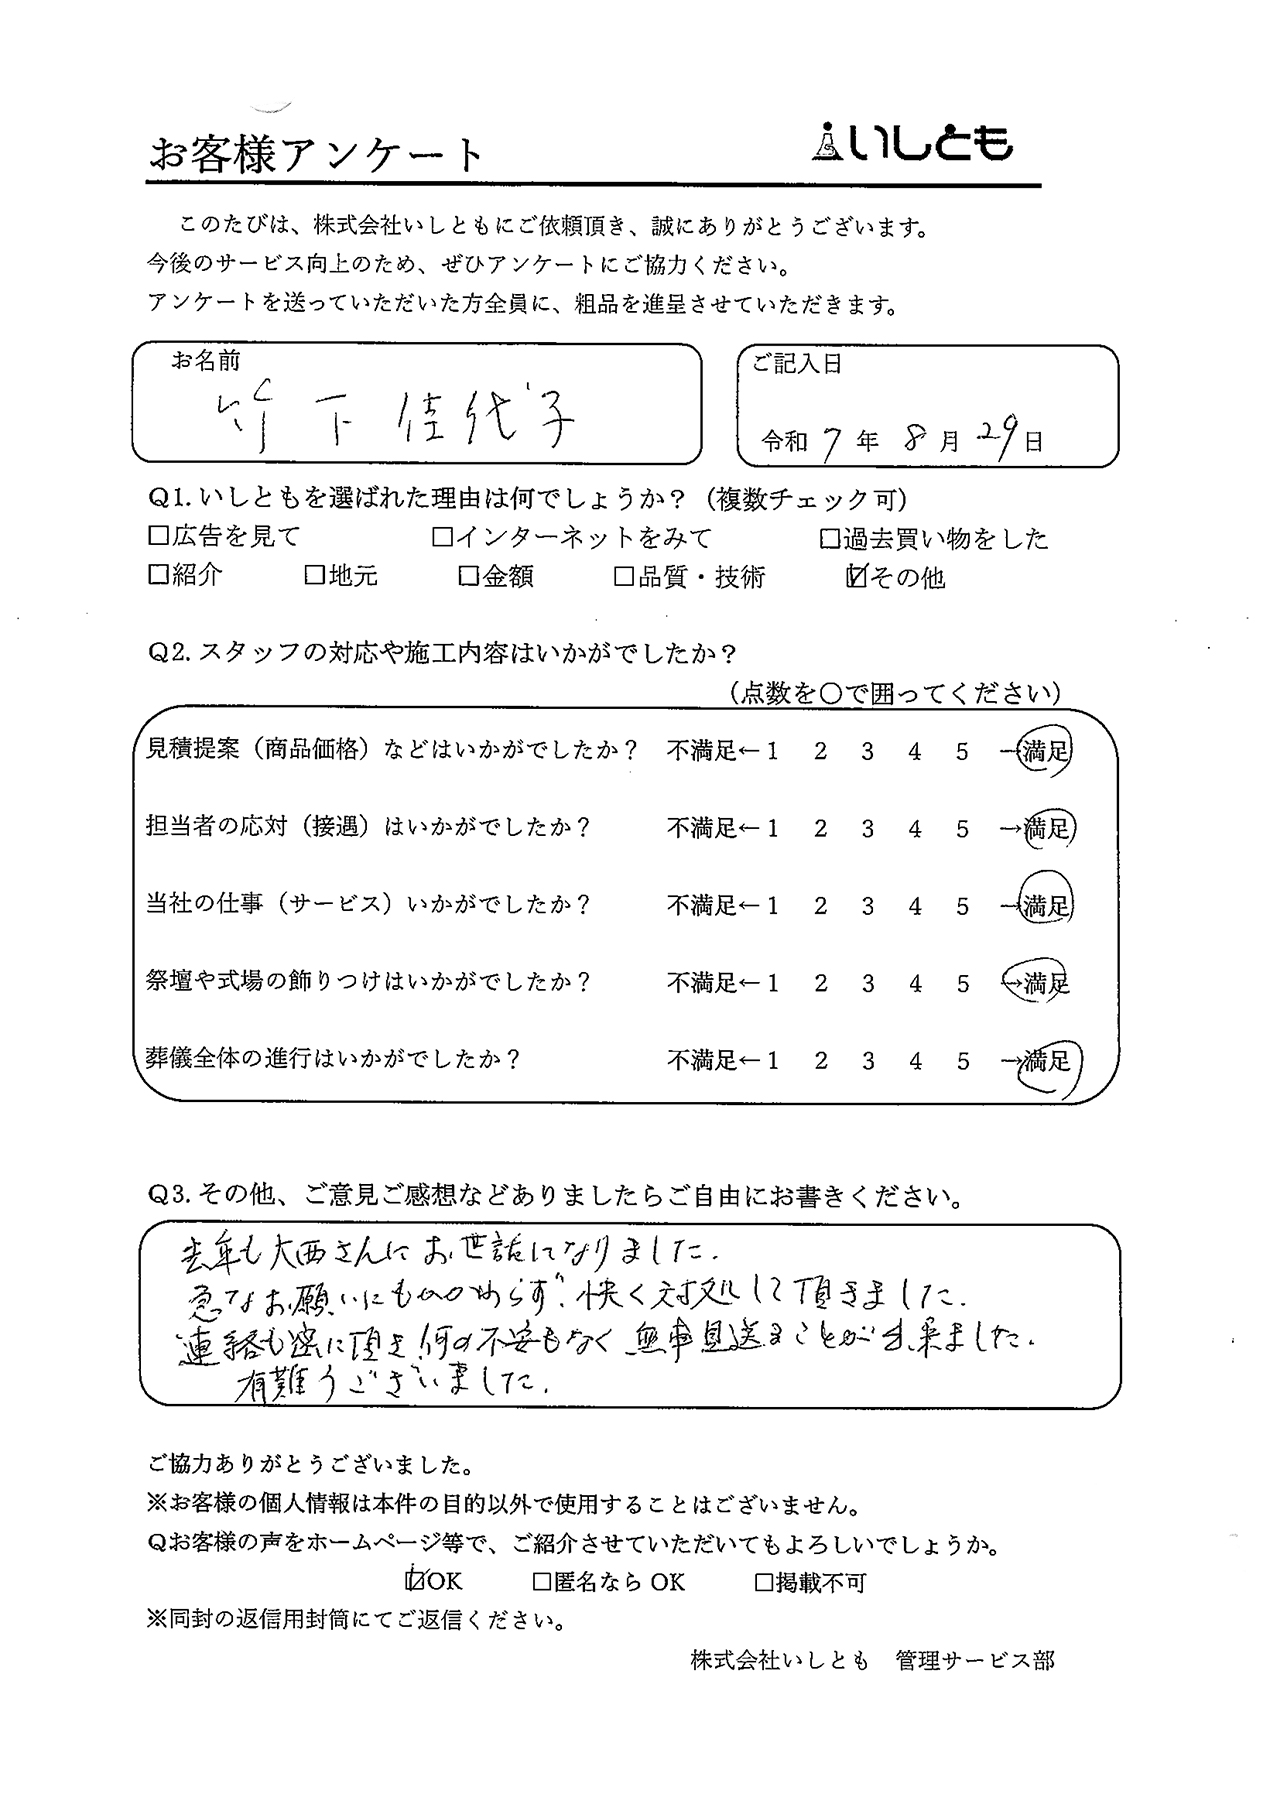 お客様アンケート
いしとも
このたびは、株式会社いしともにご依頼頂き、誠にありがとうございます。
今後のサービス向上のため、ぜひアンケートにご協力ください。
アンケートを送っていただいた方全員に、粗品を進呈させていただきます。
お名前
竹下佳代子
ご記入日
令和7年8月29日
Q1.いしともを選ばれた理由は何でしょうか？（複数チェック可）
□広告を見て □インターネットをみて □過去買い物をした
□紹介 □地元 □金額 □品質・技術 ☑その他
Q2.スタッフの対応や施工内容はいかがでしたか？
（点数を〇で囲ってください）
見積提案（商品価格）などはいかがでしたか？ 不満足←1 2 3 4 5 →満足
担当者の応対（接遇）はいかがでしたか？ 不満足←1 2 3 4 5 →満足
当社の仕事（サービス）いかがでしたか？ 不満足←1 2 3 4 5 →満足
祭壇や式場の飾りつけはいかがでしたか？ 不満足←1 2 3 4 5 →満足
葬儀全体の進行はいかがでしたか？ 不満足←1 2 3 4 5 →満足
Q3.その他、ご意見ご感想などありましたらご自由にお書きください。
去年も大西さんにお世話になりました.
急なお願いにもかかわらず、快く対処して頂きました.
連絡も密に頂き何の不安もなく無事見送ることが出来ました.
有難うございました.
ご協力ありがとうございました。
※お客様の個人情報は本件の目的以外で使用することはございません。
Qお客様の声をホームページ等で、ご紹介させていただいてもよろしいでしょうか。
☑OK □匿名なら OK □掲載不可
※同封の返信用封筒にてご返信ください。
株式会社いしとも 管理サービス部